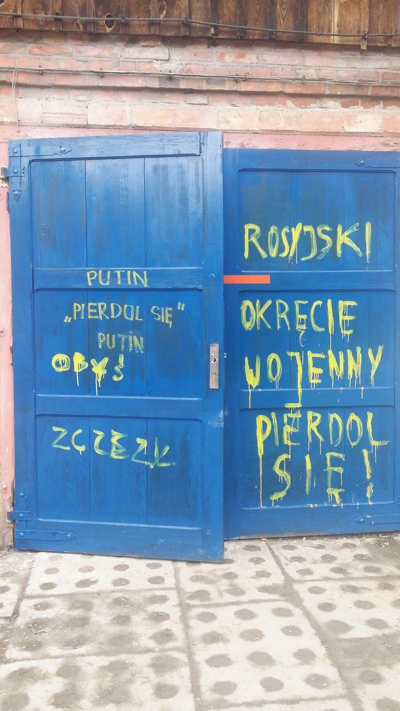 PUTIN
„PIERDOL SIĘ"
PUTIN
OBYŚ
ZCZEZŁ
ROSYJSKI
OKRĘCIE
WOJENNY
PIERDOL
SIĘ!